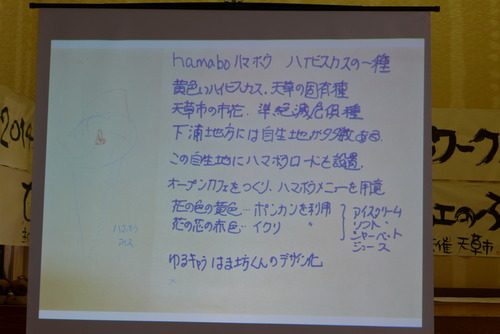 hamabo ハマボウ ハイビスカスの一種
黄色いハイビスカス、天草の固有種
天草市の市花、準絶滅危惧種
下浦地方には自生地が多数ある。
この自生地にハマボウロードを設置、
オープンカフェをつくり、ハマボウメニューを用意
花の色の黄色… ポンカンを利用
花の芯の赤色… イクリ 〃
アイスクリーム
ソフト
シャーベット
ジュース
ゆるキャラ はま坊くんのデザイン化
ハマボウ
アイス
2014
ワーク
エのふ
催 天草市